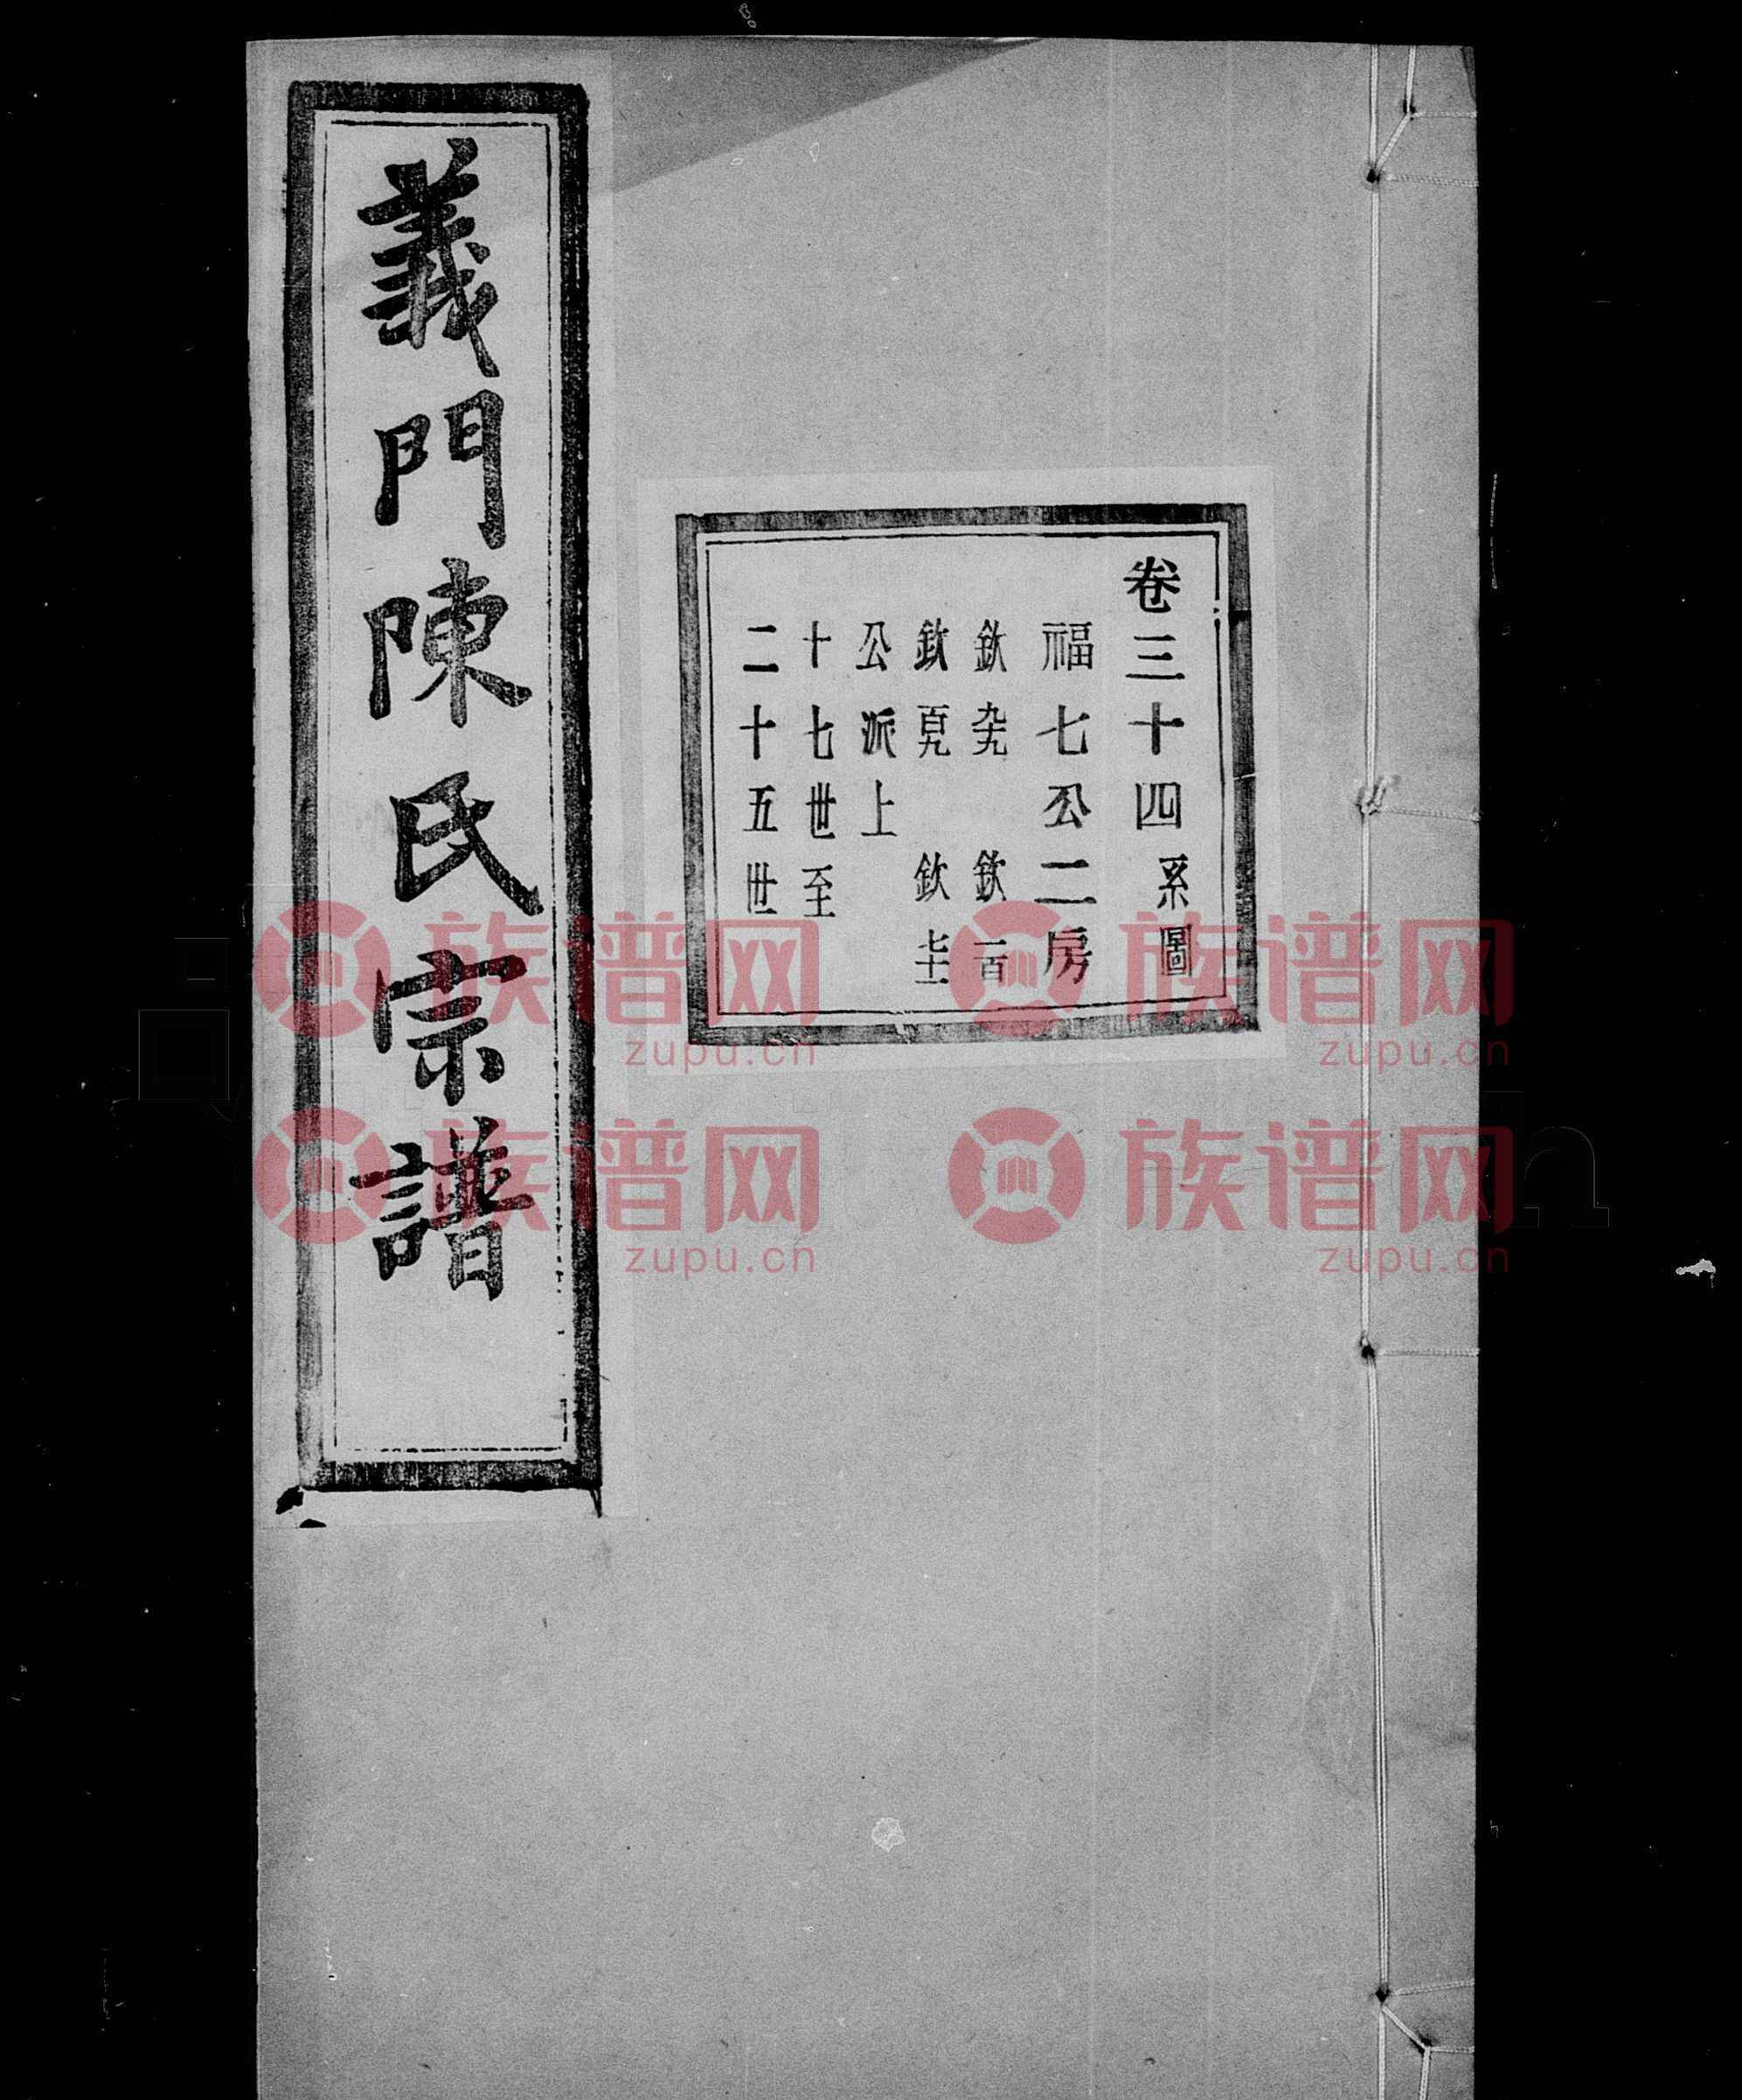 卷三十四系圖
福七公二房
欽九十九 欽一百
欽百九 欽七十一
公派上
十七世至
二十五世
義門陳氏宗譜
族谱网 族谱网
zupu.cn zupu.cn
族谱网 族谱网
zupu.cn zupu.cn